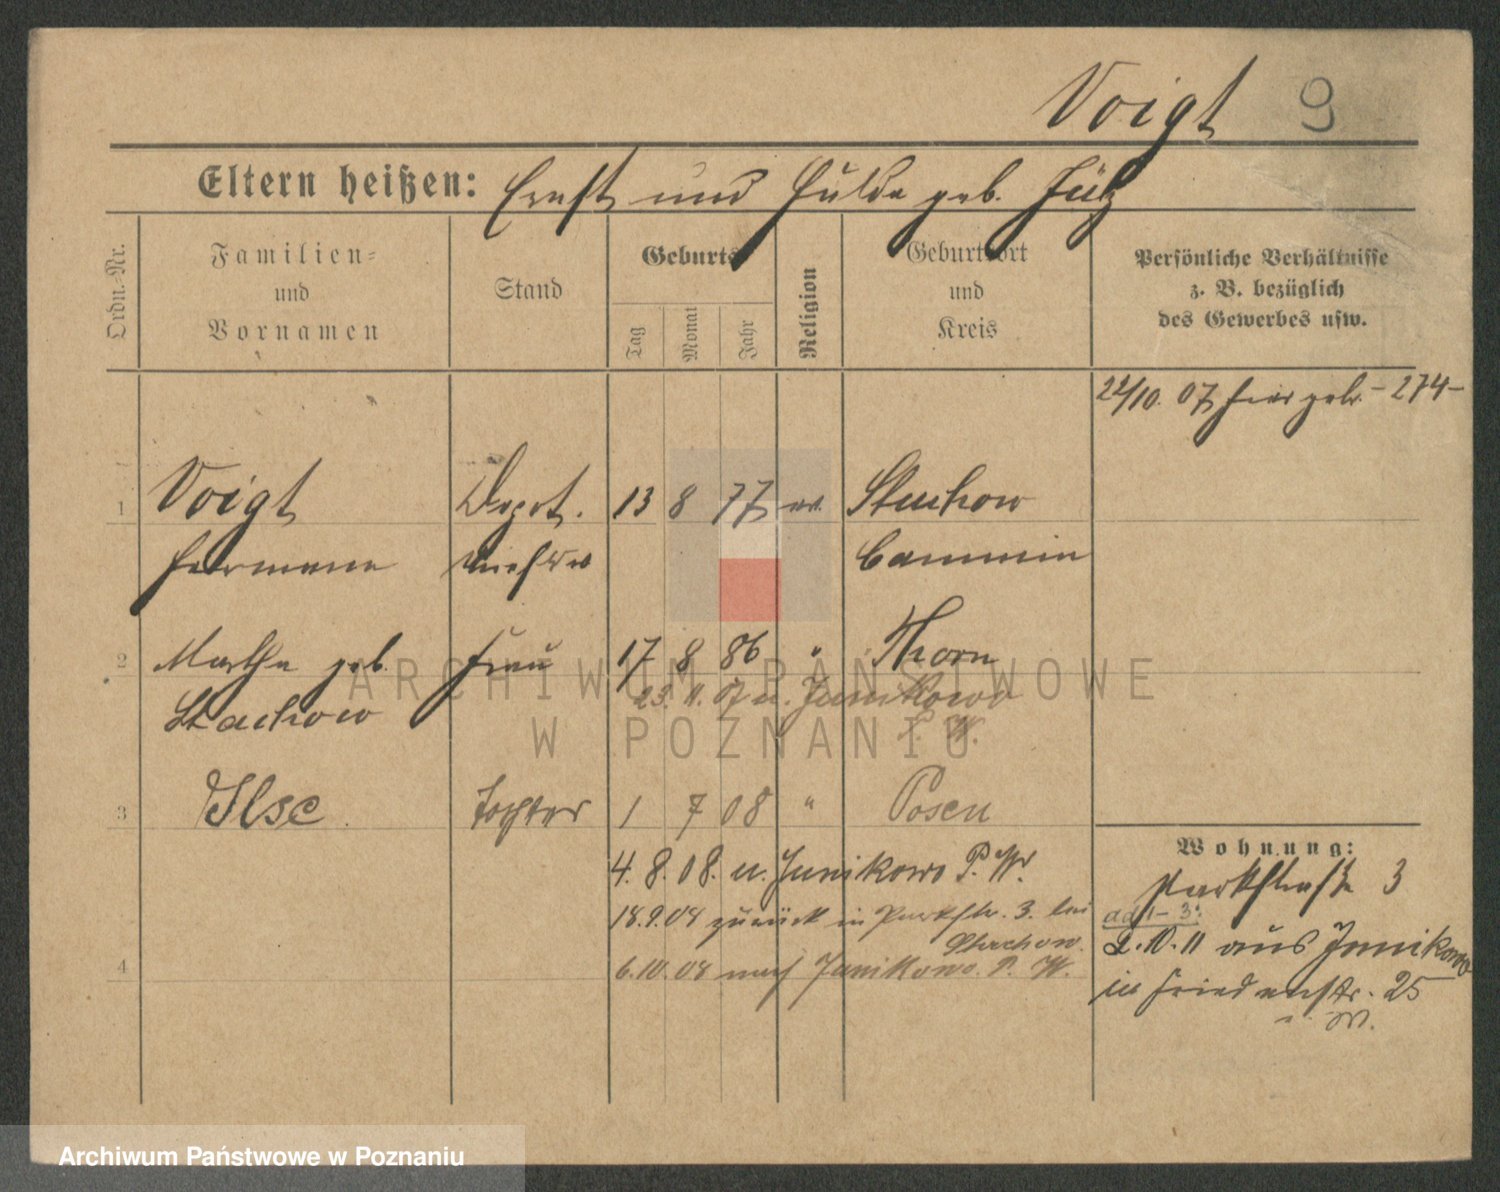 Voigt 9
Eltern heißen: Ernst und Hulda geb.
Ordn.-Nr.
Familien- und Vornamen
Stand
Geburts
Tag Monat Jahr
Religion
Geburtsort und Kreis
Persönliche Verhältnisse
z. B. bezüglich
des Gewerbes usw.
22/10. 07 hier geb. - 274 -
1 Voigt 13 8 77 ev. Stuchow
Hermann Cammin
2 Martha geb. Frau 17 8 86 " Thorn
Stachow 23. 11. 07 n. Junikowo
P. W.
3 Ilse Tochter 1 7 08 " Posen
Wohnung:
Parkstraße 3
4. 8. 08. n. Junikowo P. W.
18.9.08 zurück in Parkstr. 3. bei
Stachow.
4 6.10.08 nach Junikowo. P. W.
ad 1-3:
2.10.11 aus Junikowo
in Friedenstr. 25
ARCHIWUM PAŃSTWOWE
W POZNANIU
Archiwum Państwowe w Poznaniu